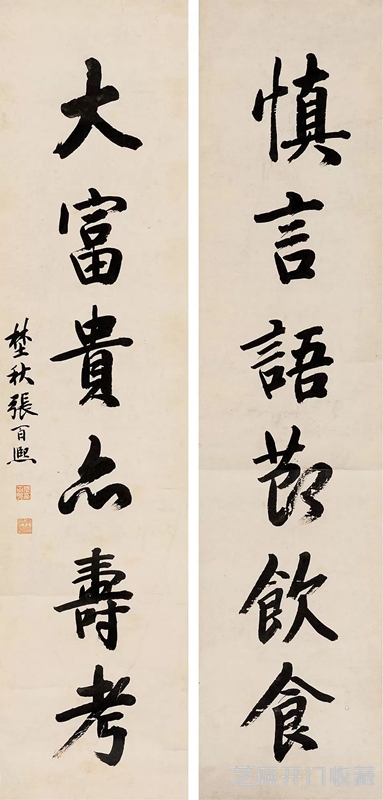 慎言語節飲食
大富貴亦壽考
埜秋張百熙
芝麻开门收藏